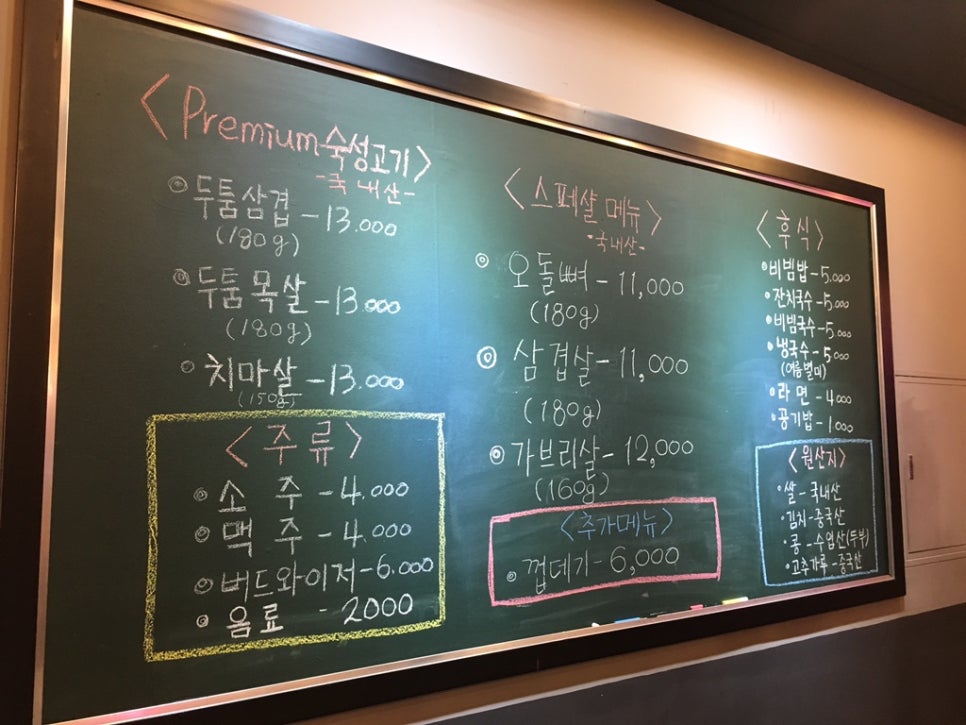 <Premium 숙성고기>
-국내산-
두툼삼겹 - 13.000
(180g)
두툼목살 - 13.000
(180g)
치마살 - 13.000
(150g)
<주류>
소 주 - 4.000
맥 주 - 4.000
버드와이저 - 6.000
음료 - 2000
<스페샬 메뉴>
-국내산-
오돌뼈 - 11,000
(180g)
삼겹살 - 11,000
(180g)
가브리살 - 12,000
(160g)
<추가메뉴>
껍데기 - 6,000
<후식>
비빔밥 - 5.000
잔치국수 - 5.000
비빔국수 - 5.000
냉국수 - 5.000
(여름별미)
라 면 - 4.000
공기밥 - 1.000
<원산지>
쌀 - 국내산
김치 - 중국산
콩 - 수입산(두부)
고추가루 - 중국산